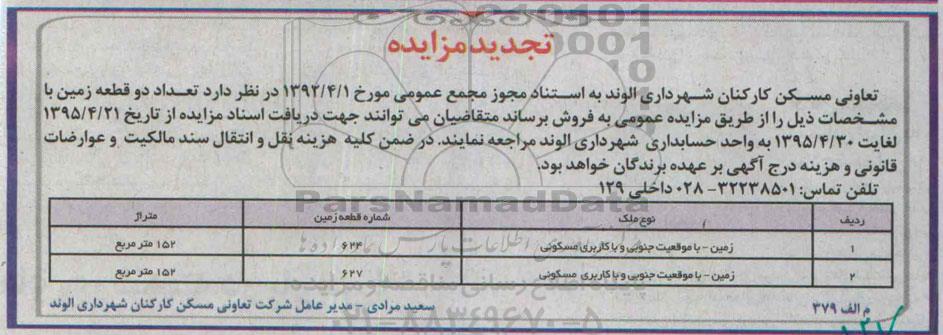 تجدید مزایده
تعاونی مسکن کارکنان شهرداری الوند به استناد مجوز مجمع عمومی مورخ ۱۳۹۲/۴/۱ در نظر دارد تعداد دو قطعه زمین با
مشخصات ذیل را از طریق مزایده عمومی به فروش برساند متقاضیان می توانند جهت دریافت اسناد مزایده از تاریخ ۱۳۹۵/۴/۲۱
لغایت ۱۳۹۵/۴/۳۰ به واحد حسابداری شهرداری الوند مراجعه نمایند. در ضمن کلیه هزینه نقل و انتقال سند مالکیت و عوارضات
قانونی و هزینه درج آگهی بر عهده برندگان خواهد بود.
تلفن تماس: ۳۲۲۳۸۵۰۱-۰۲۸ داخلی ۱۲۹
ParsNamadData
ردیف نوع ملک شماره قطعه زمین متراژ
۱ زمین - با موقعیت جنوبی و با کاربری مسکونی ۶۲۴ ۱۵۲ متر مربع
۲ زمین - با موقعیت جنوبی و با کاربری مسکونی ۶۲۷ ۱۵۲ متر مربع
م الف ۳۷۹ سعید مرادی - مدیر عامل شرکت تعاونی مسکن کارکنان شهرداری الوند
۰۲۱-۸۸۳۴۹۶۷۰-۵